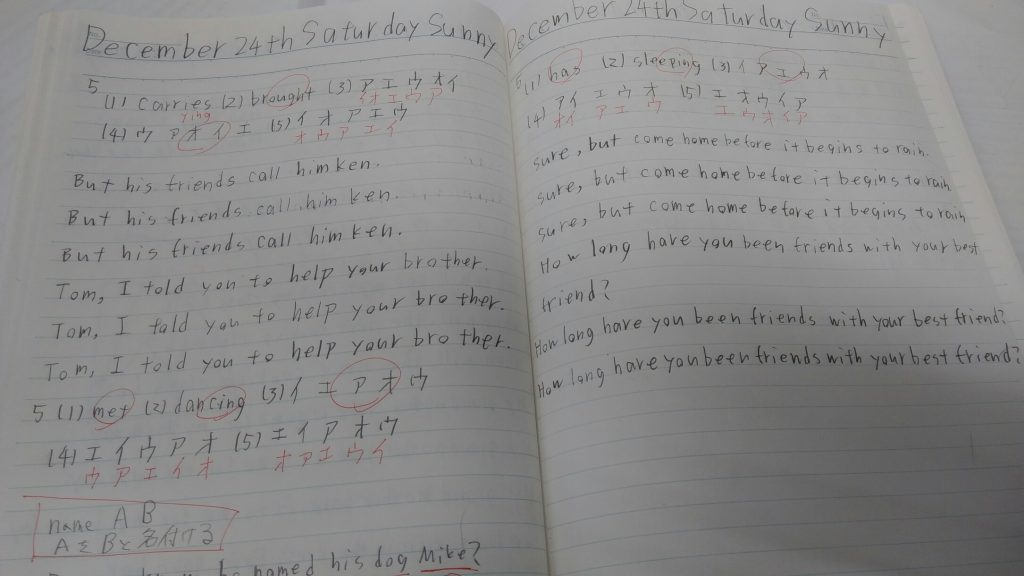 December 24th Saturday Sunny
5 (1) carries (2) brought (3) ア エ ウ オ イ
ying イ オ エ ウ ア
(4) ウ ア オ イ エ (5) イ オ ア エ ウ
オ ウ ア エ イ
But his friends call him ken.
But his friends call him ken.
But his friends call him ken.
Tom, I told you to help your brother.
Tom, I told you to help your brother.
Tom, I told you to help your brother.
5 (1) met (2) dancing (3) イ エ ア オ ウ
(4) エ イ ウ ア オ (5) エ イ ア オ ウ
ウ ア エ イ オ オ ア エ ウ イ
name A B
AをBと名付ける
he named his dog Mike?
December 24th Saturday Sunny
(1) has (2) sleeping (3) イ ア エ ウ オ
(4) ア イ エ ウ オ (5) エ オ ウ イ ア
オ イ ア エ ウ エ ウ オ イ ア
sure, but come home before it begins to rain.
sure, but come home before it begins to rain
sure, but come home before it begins to rain
How long have you been friends with your best
friend?
How long have you been friends with your best friend?
How long have you been friends with your best friend?